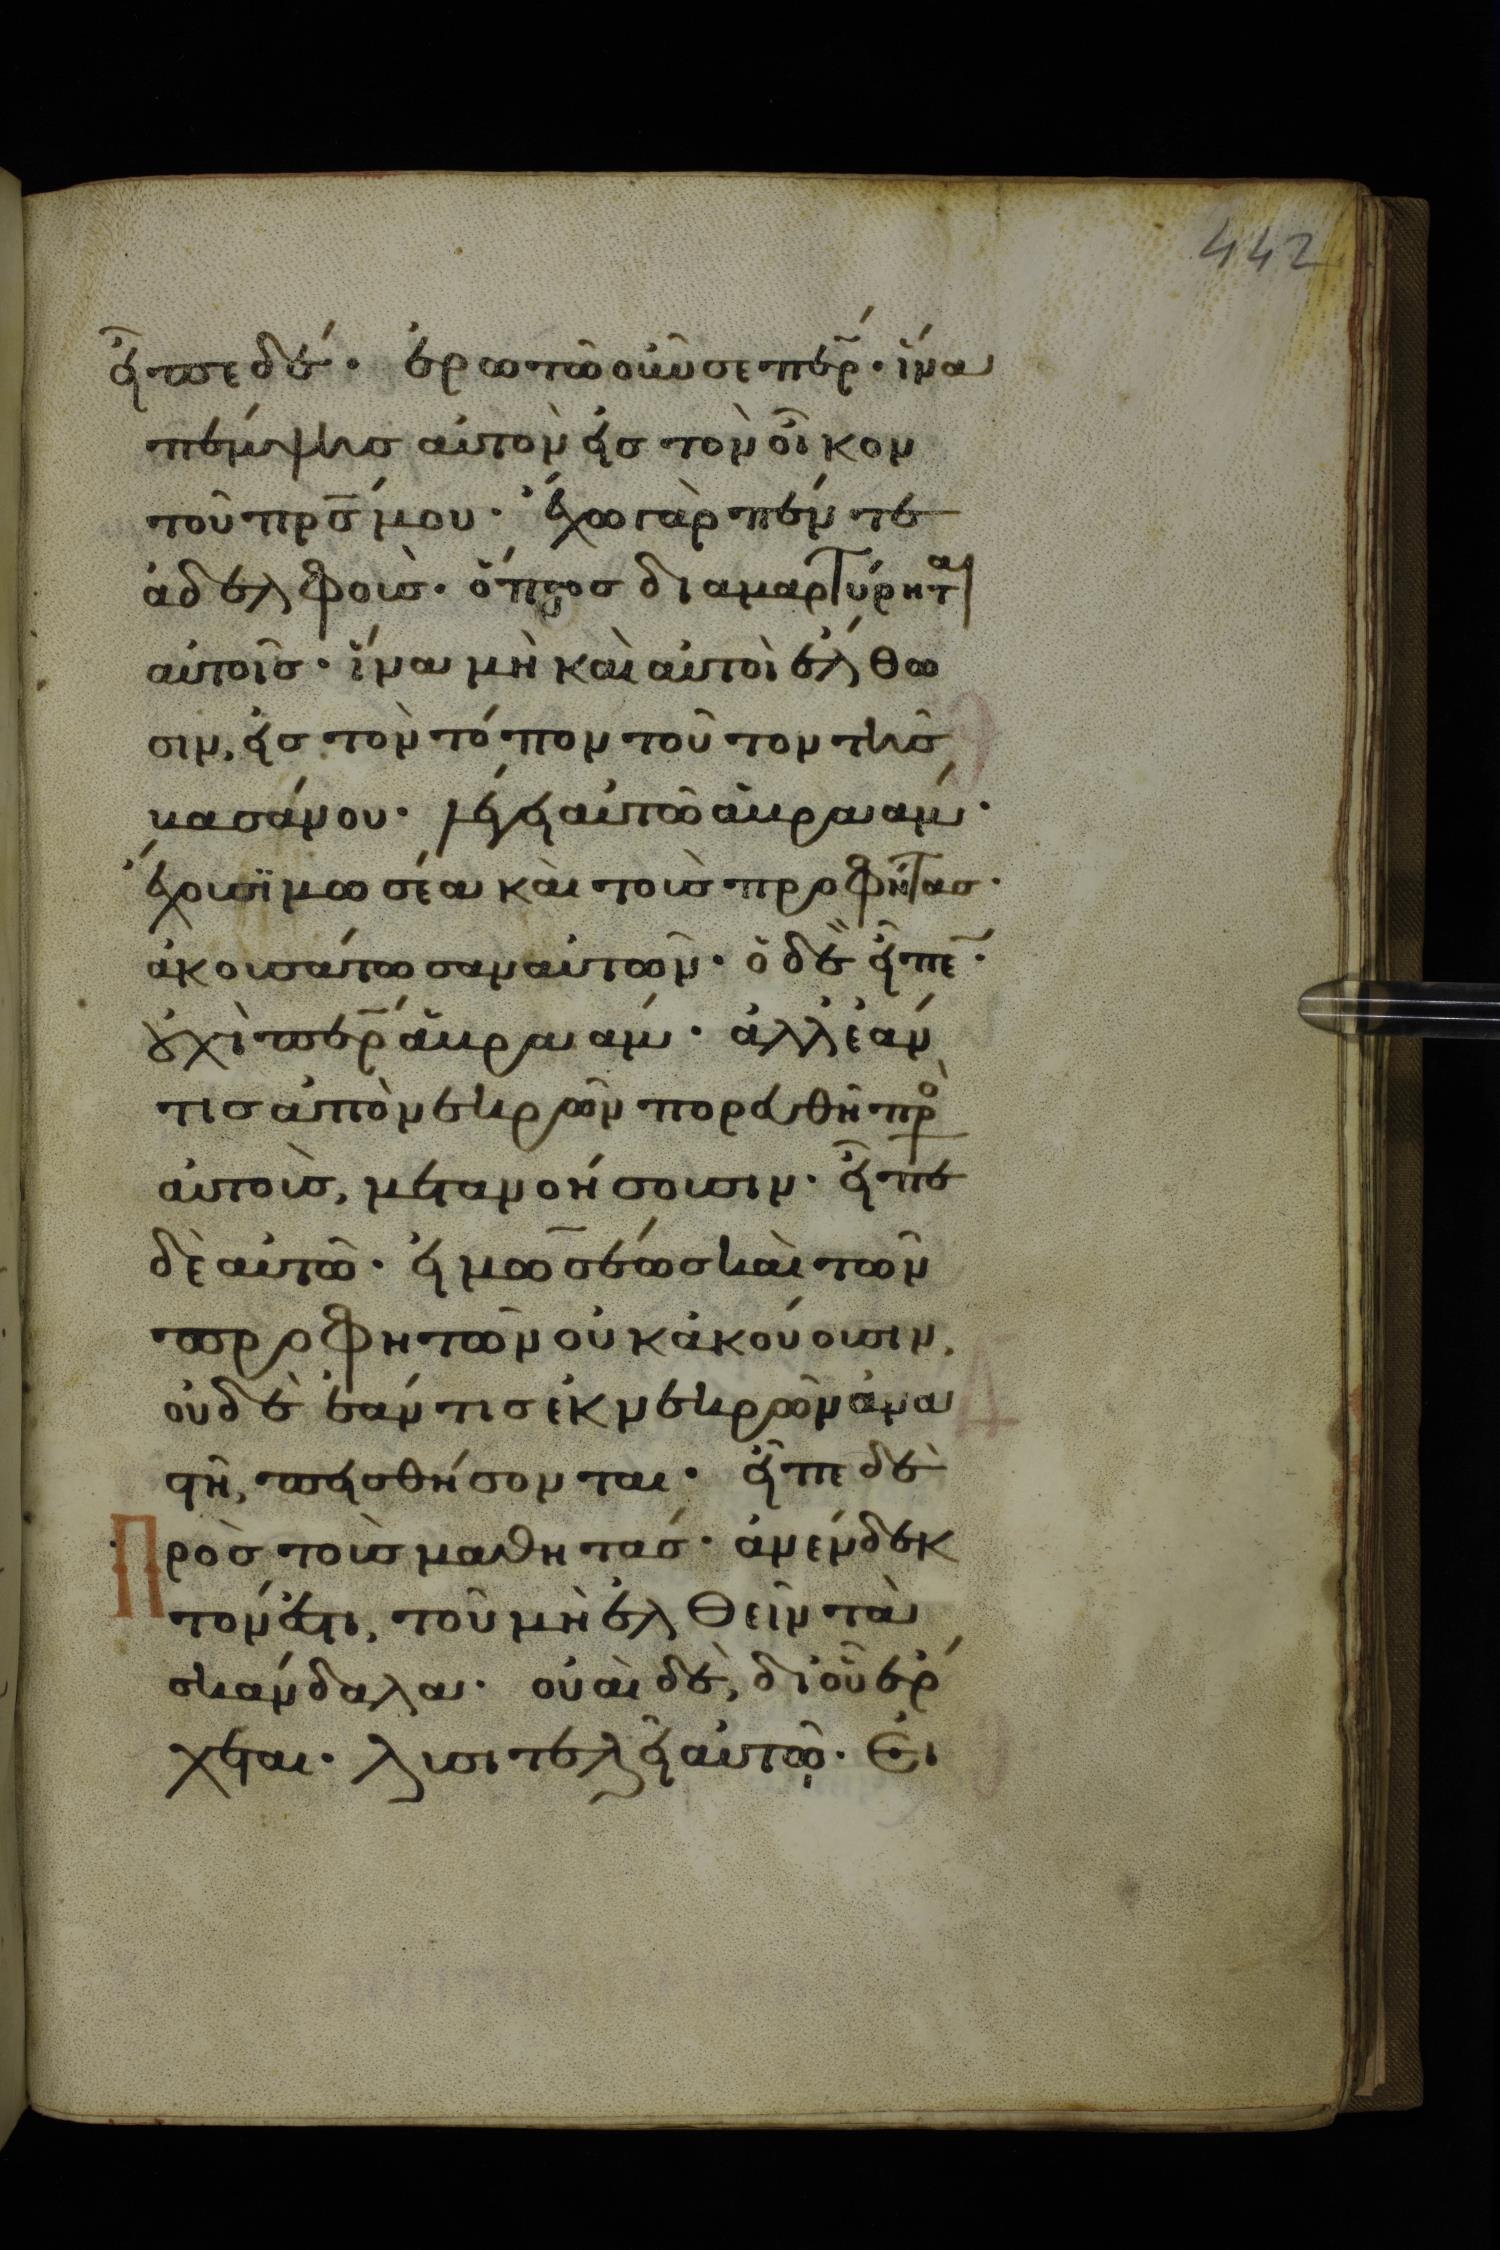 442
εἶπε δέ· ἐρωτῶ οὖν σε πε̅ρ· ἵνα
πέμψης αὐτὸν εἰς τὸν οἶκον
τοῦ πρ̅σ μου· ἔχω γὰρ πέντε
ἀδελφούς· ὅπως διαμαρτύρηται
αὐτοῖς· ἵνα μὴ καὶ αὐτοὶ ἔλθω
σιν, εἰς τὸν τόπον τοῦτον τῆς
βασάνου· λέγει αὐτῶ ἀβραάμ·
ἔχουσϊ μωσέα καὶ τοὺς προφήτας·
ἀκουσάτωσαν αὐτῶν· ὁ δὲ εἶπε·
οὐχὶ πε̅ρ ἀβραάμ· ἀλλ' ἐάν
τις ἀπὸ νεκρῶν πορευθῆ πρὸ
αὐτούς, μετανοήσουσιν· εἶπε
δὲ αὐτῶ· εἰ μωσέως καὶ τῶν
προφητῶν οὐκ ἀκούουσιν,
οὐδὲ ἐάν τις ἐκ νεκρῶν ἀνα
στῆ, πεισθήσονται· εἶπε δὲ
Πρὸς τοὺς μαθητάς· ἀνένδεκ
τόν ἐστι, τοῦ μὴ ἐλθεῖν τὰ
σκάνδαλα· οὐαὶ δὲ, δι' οὗ ἔρ
χεται· λυσιτελεῖ αὐτῶ· Εἰ